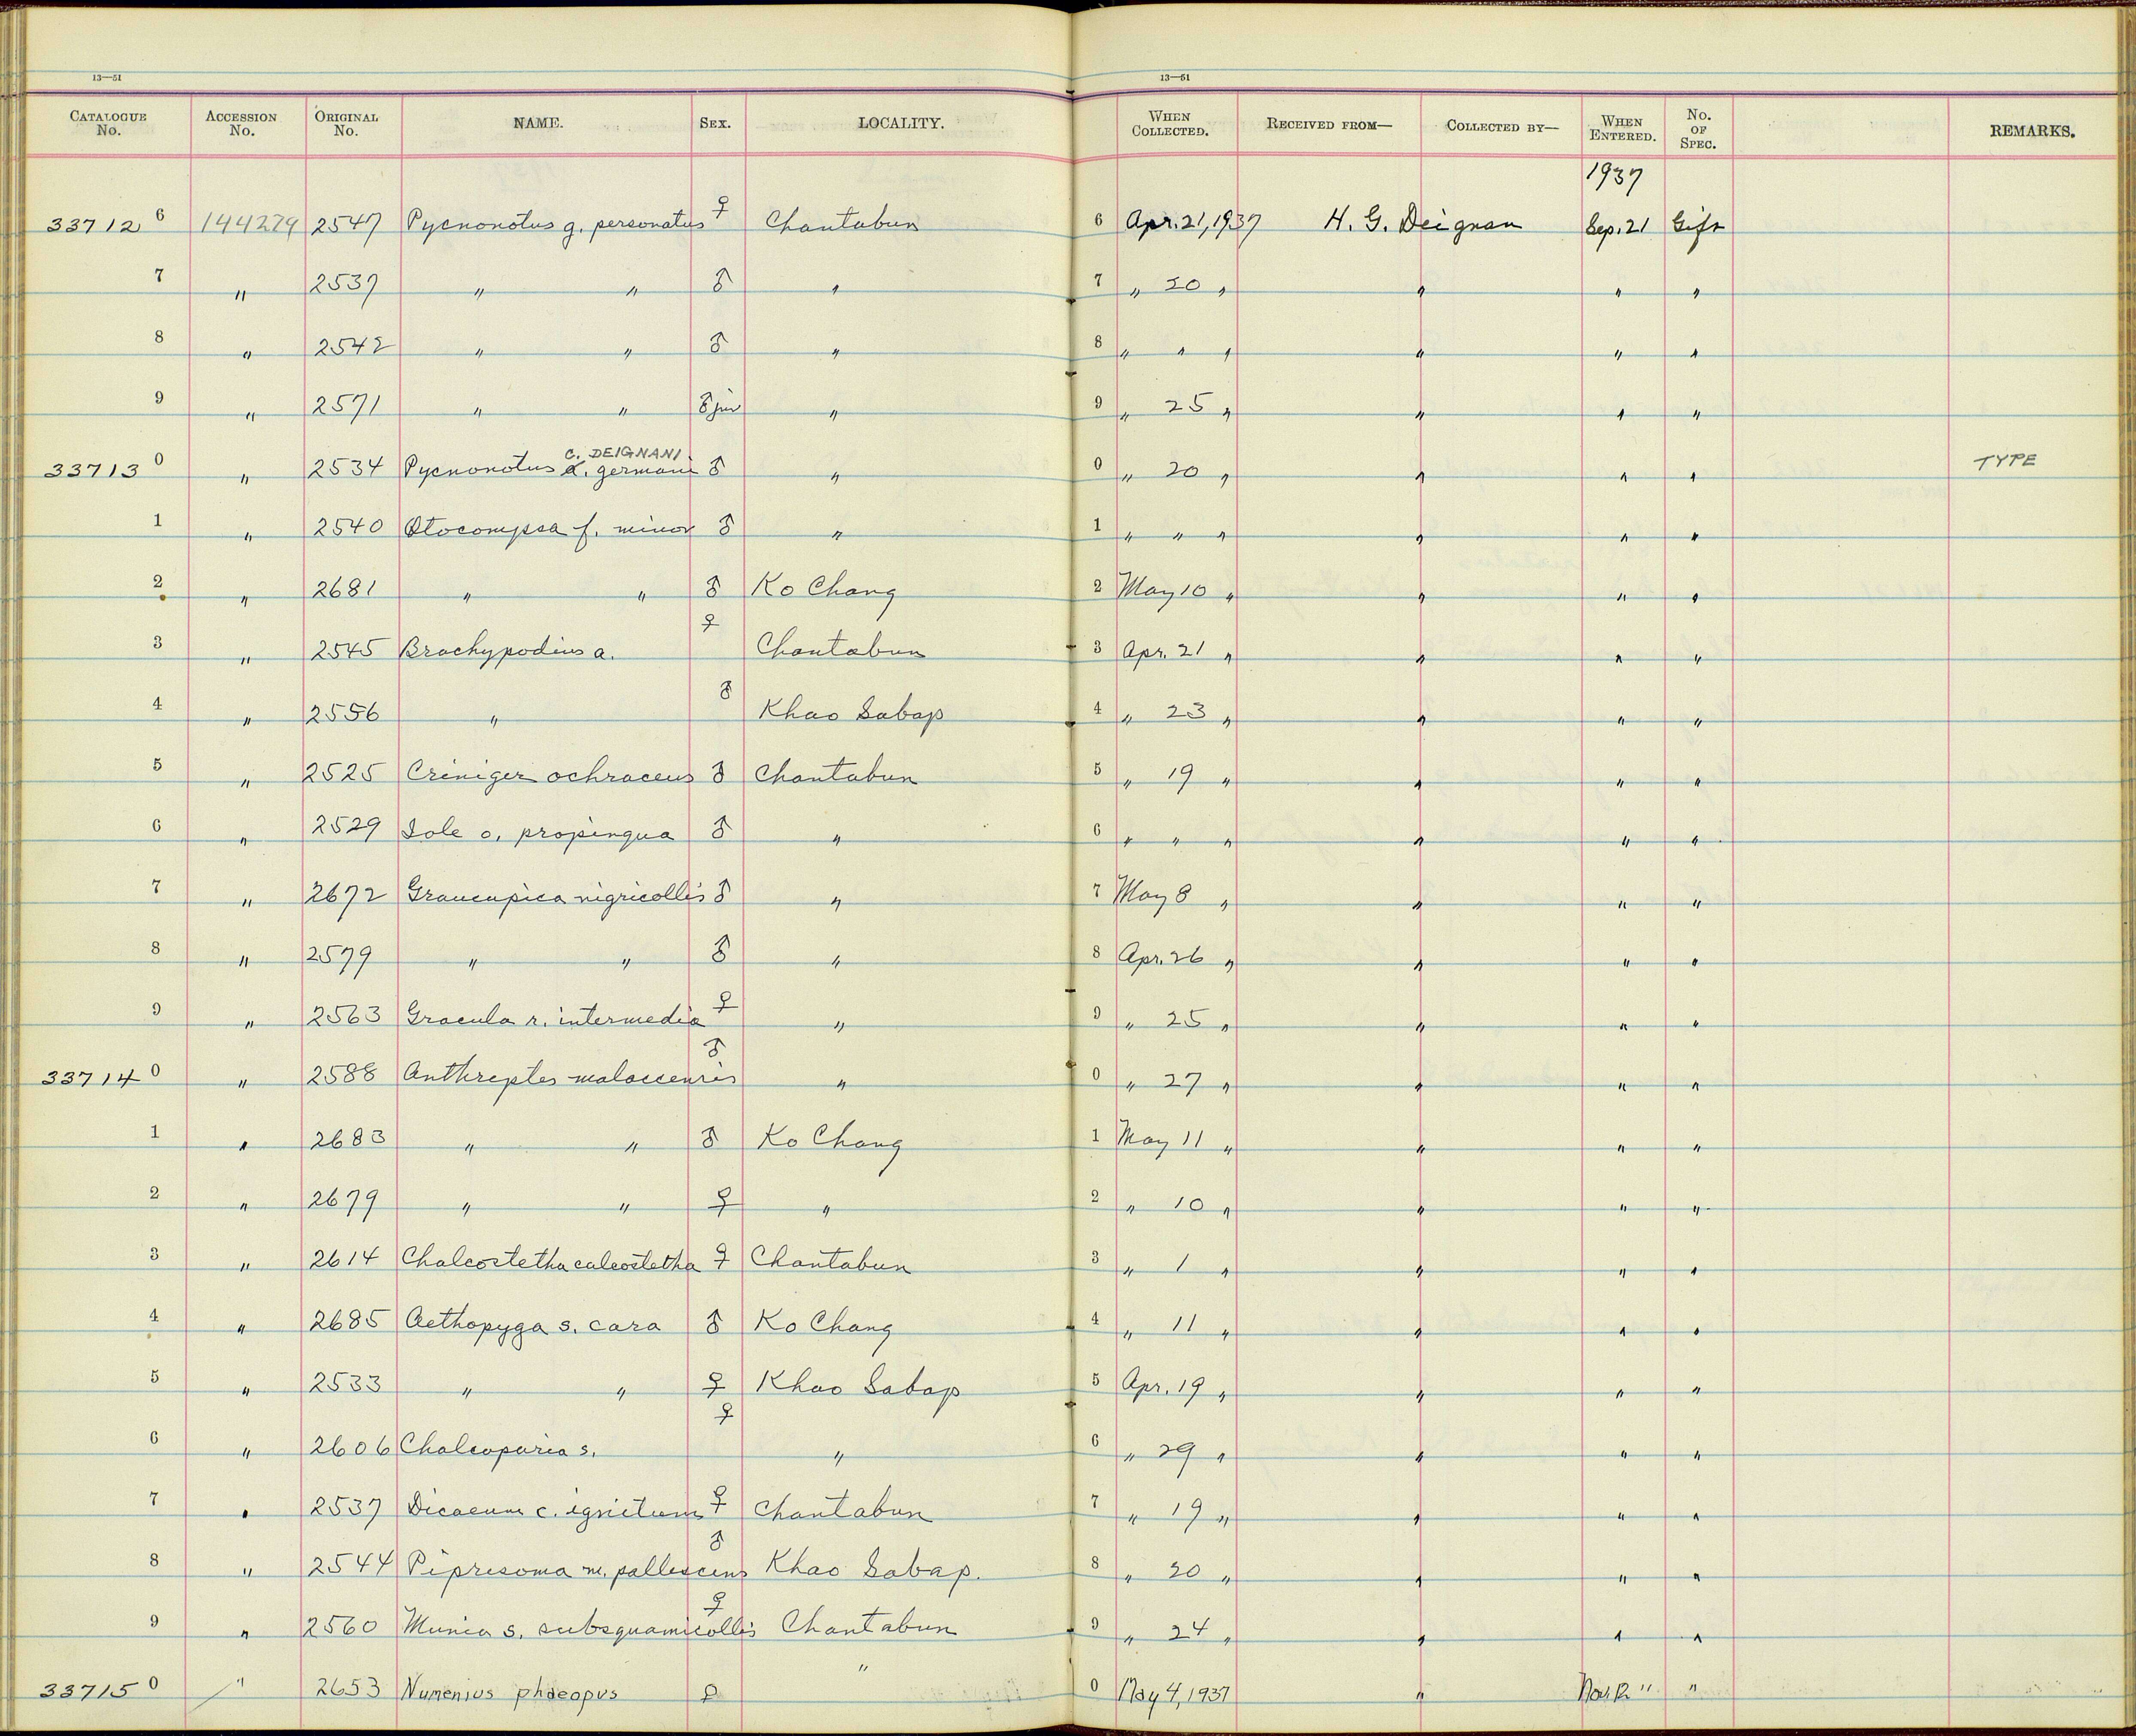 13—51 13—51
CATALOGUE No. ACCESSION No. ORIGINAL No. NAME. SEX. LOCALITY. WHEN COLLECTED. RECEIVED FROM— COLLECTED BY— WHEN ENTERED. No. OF SPEC. REMARKS.
1937
33712 6 144279 2547 Pycnonotus g. personatus ♀ Chantabun 6 Apr. 21, 1937 H. G. Deignan Sep. 21 Gift
7 " 2539 " " ♂ " 7 " 20 " " " "
8 " 2542 " " ♂ " 8 " " " " " "
9 " 2571 " " ♂ juv " 9 " 25 " " " "
C. DEIGNANI
33713 0 " 2534 Pycnonotus germani ♂ " 0 " 20 " " " " TYPE
1 " 2540 Otocompsa f. minor ♂ " 1 " " " " " "
2 " 2681 " " ♂ Ko Chang 2 May 10 " " " "
3 " 2545 Brachypodius a. ♀ Chantabun 3 Apr. 21 " " " "
4 " 2556 " ♂ Khao Sabap 4 " 23 " " " "
5 " 2525 Criniger ochraceus ♂ Chantabun 5 " 19 " " " "
6 " 2529 Iole o. propinqua ♂ " 6 " " " " " "
7 " 2672 Graucupica nigricollis ♂ " 7 May 8 " " " "
8 " 2579 " " ♂ " 8 Apr. 26 " " " "
9 " 2563 Gracula r. intermedia ♀ " 9 " 25 " " " "
33714 0 " 2588 Anthreptes malaccensis ♂ " 0 " 27 " " " "
1 " 2683 " " ♂ Ko Chang 1 May 11 " " " "
2 " 2679 " " ♀ " 2 " 10 " " " "
3 " 2614 Chalcostetha calcostetha ♀ Chantabun 3 " 1 " " " "
4 " 2685 Aethopyga s. cara ♂ Ko Chang 4 " 11 " " " "
5 " 2533 " " ♀ Khao Sabap 5 Apr. 19 " " " "
6 " 2606 Chalcoparia s. ♀ " 6 " 29 " " " "
7 " 2537 Dicaeum c. ignitum ♀ Chantabun 7 " 19 " " " "
8 " 2544 Piprisoma m. pallescens ♂ Khao Sabap. 8 " 20 " " " "
9 " 2560 Munia s. subsquamicollis ♀ Chantabun 9 " 24 " " " "
33715 0 " 2653 Numenius phaeopus ♀ " 0 May 4, 1937 " " "